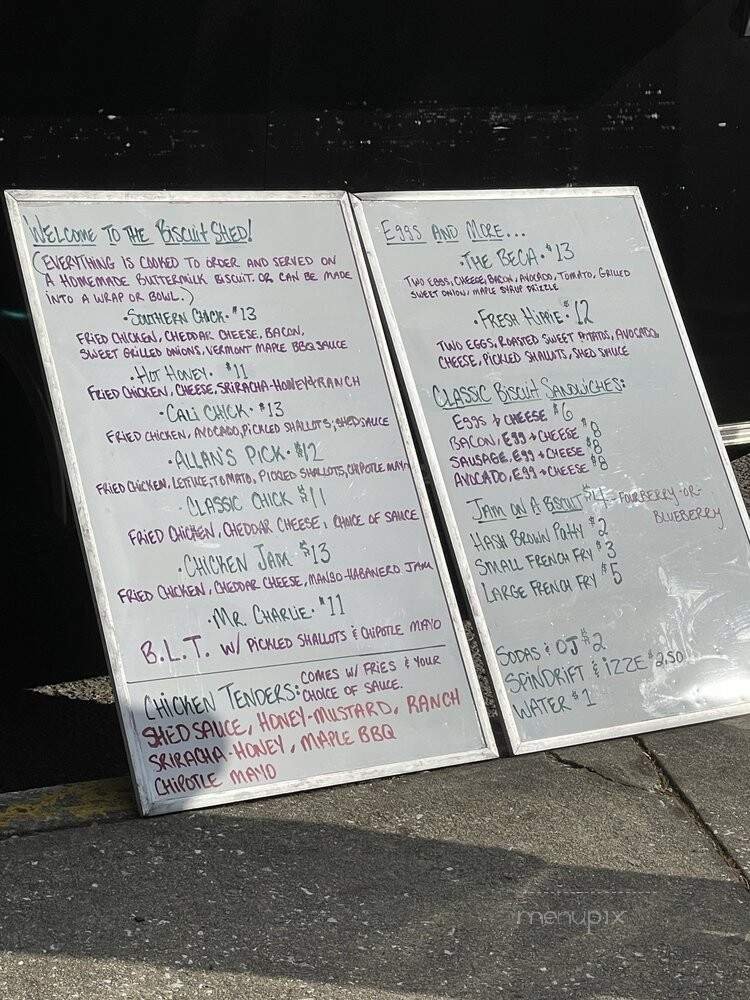 WELCOME TO THE BISCUIT SHED!
(EVERYTHING IS COOKED TO ORDER AND SERVED ON
A HOMEMADE BUTTERMILK BISCUIT. OR CAN BE MADE
INTO A WRAP OR BOWL.)
·SOUTHERN CHICK·$13
FRIED CHICKEN, CHEDDAR CHEESE, BACON,
SWEET GRILLED ONIONS, VERMONT MAPLE BBQ SAUCE
·HOT HONEY· $11
FRIED CHICKEN, CHEESE, SRIRACHA-HONEY & RANCH
·CALI CHICK·$13
FRIED CHICKEN, AVOCADO, PICKLED SHALLOTS, SHED SAUCE
·ALLAN'S PICK·$12
FRIED CHICKEN, LETTUCE, TOMATO, PICKLED SHALLOTS, CHIPOTLE MAYO
·CLASSIC CHICK $11
FRIED CHICKEN, CHEDDAR CHEESE, CHOICE OF SAUCE
·CHICKEN JAM $13
FRIED CHICKEN, CHEDDAR CHEESE, MANGO-HABANERO JAM
·MR. CHARLIE·$11
B.L.T. W/ PICKLED SHALLOTS & CHIPOTLE MAYO
CHICKEN TENDERS: COMES W/ FRIES & YOUR
CHOICE OF SAUCE.
SHED SAUCE, HONEY-MUSTARD, RANCH
SRIRACHA-HONEY, MAPLE BBQ
CHIPOTLE MAYO
EGGS AND MORE...
·THE BECA·$13
TWO EGGS, CHEESE, BACON, AVOCADO, TOMATO, GRILLED
SWEET ONION, MAPLE SYRUP DRIZZLE
·FRESH HIPPIE·$12
TWO EGGS, ROASTED SWEET POTATOS, AVOCADO,
CHEESE, PICKLED SHALLOTS, SHED SAUCE
CLASSIC BISCUIT SANDWICHES:
EGGS + CHEESE $6
BACON, EGG + CHEESE $8
SAUSAGE, EGG + CHEESE $8
AVOCADO, EGG + CHEESE $8
JAM ON A BISCUIT $4 - FOURBERRY-OR-
BLUEBERRY
HASH BROWN PATTY $2
SMALL FRENCH FRY $3
LARGE FRENCH FRY $5
SODAS & OJ $2
SPINDRIFT & IZZE $2.50
WATER $1
menupix